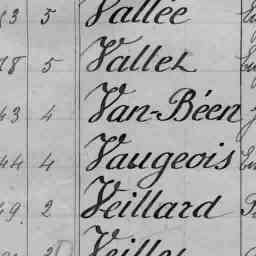 83 5 Vallée
78 5 Vallet
43 4 Van-Béen
44 4 Vaugeois
49 2 Veillard